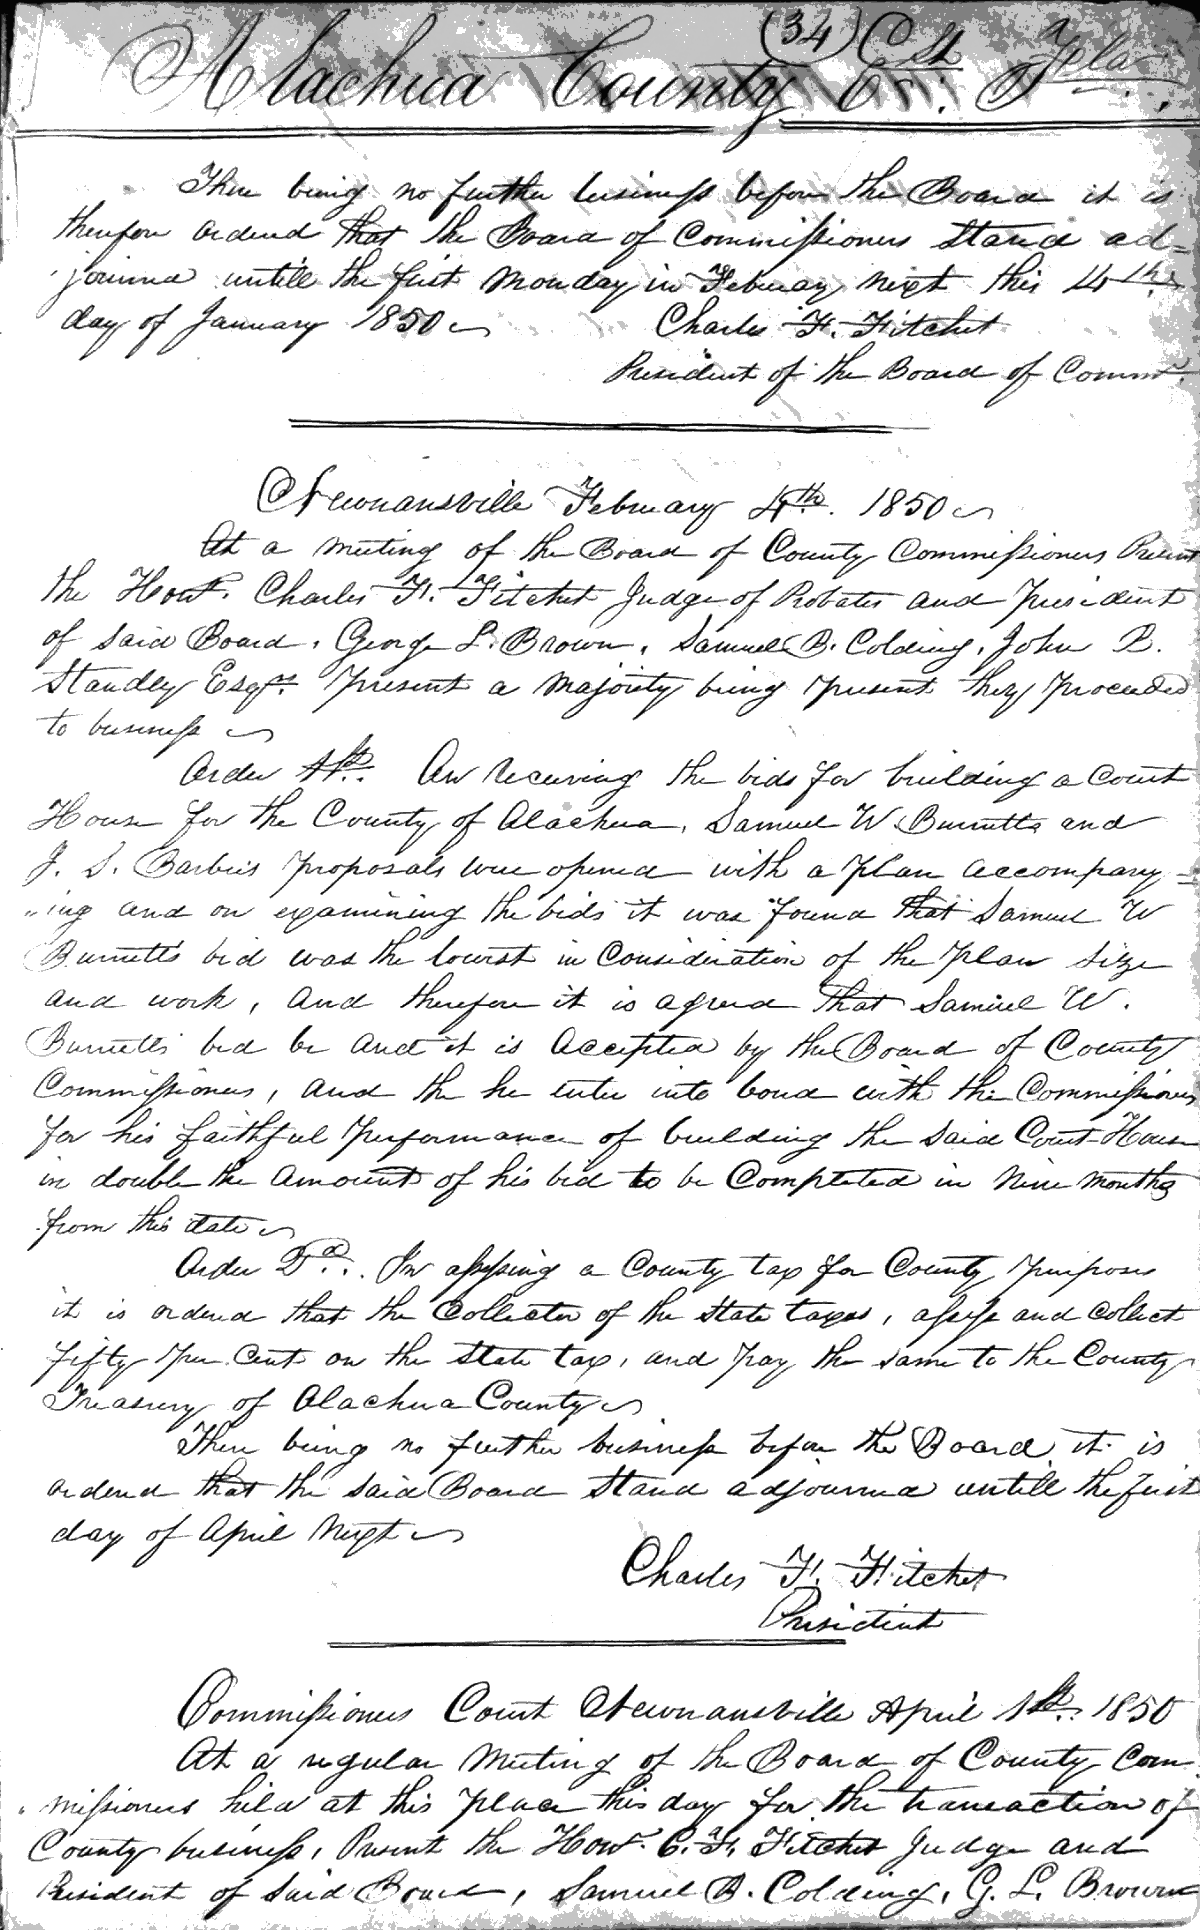 (34)
Alachua County Ct. Fla.
There being no further business before the Board it is
therefore ordered that the Board of Commissioners Stand ad=
journed untill the first Monday in Febuary next this 4th
day of January 1850
Charles F. Fitchet
President of the Board of Commrs.
Newnansville February 4th. 1850
At a meeting of the Board of County Commissioners Present
the Honl. Charles F. Fitchet Judge of Probates and President
of Said Board, George L. Brown, Samuel B. Colding, John R.
Standley Esqrs. Present a Majority being present they proceeded
to business
Order 1st. On receiving the bids for building a Court
House for the County of Alachua, Samuel W. Burnetts and
J. S. Barbers proposals were opened with a plan accompany=
"ing and on examining the bids it was found that Samuel W
Burnetts bid was the lowest in consideration of the plan size
and work, and therefore it is agreed that Samuel W.
Burnetts bid be and it is accepted by the Board of County
Commissioners, and the he enter into bond with the Commissioners
for his faithful performance of building the said Court House
in double the amount of his bid to be Completed in Nine Months
from this date
Order 2d. In assessing a County tax for County purposes
it is ordered that the Collector of the State taxes, assess and collect
fifty per Cent on the State tax, and pay the same to the County
Treasury of Alachua County
There being no further business before the Board it is
ordered that the said Board Stand adjourned untill the first
day of April Next
Charles F. Fitchet
President
Commissioners Court Newnansville April 1st. 1850
At a regular Meeting of the Board of County Com-
"missioners held at this place this day for the transaction of
County business, Present the Honl. C. F. Fitchet Judge and
President of Said Board, Samuel B. Colding, G. L. Brown